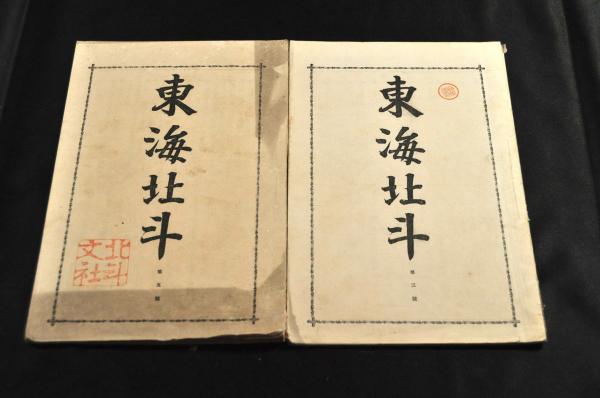 東海北斗
第五號
北斗
文社
東海北斗
第三號